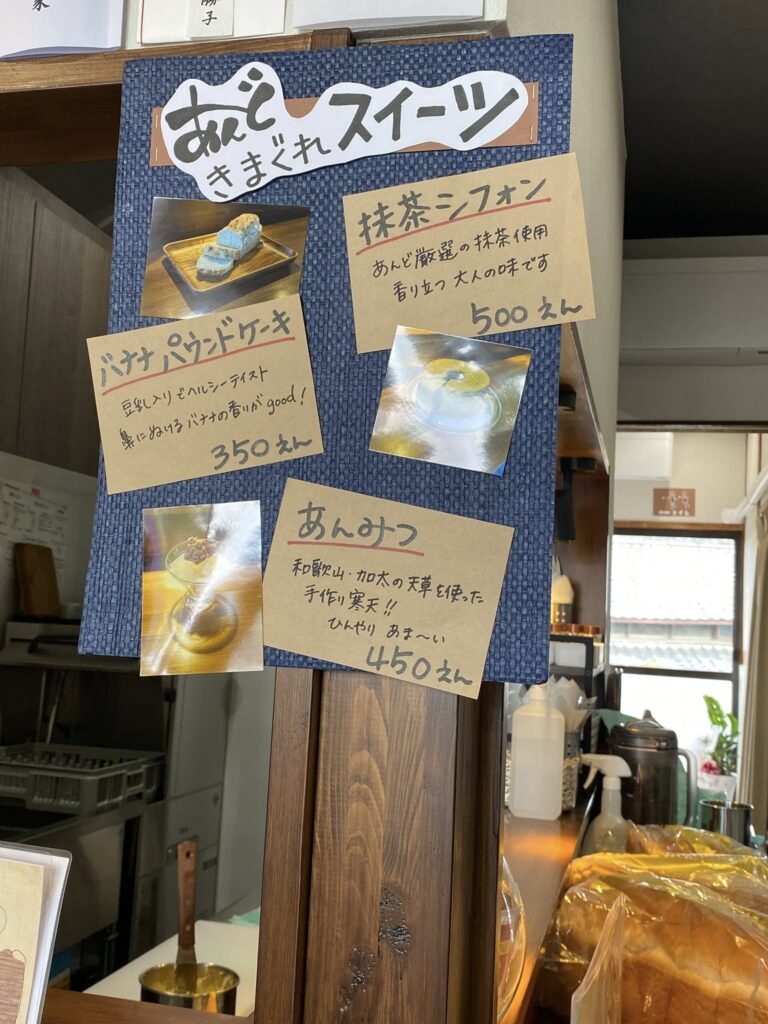 家
勝子
あんど
きまぐれスイーツ
抹茶シフォン
あんど厳選の抹茶使用
香り立つ大人の味です
500えん
バナナパウンドケーキ
豆乳入りでヘルシーテイスト
鼻にぬけるバナナの香りがgood!
350えん
あんみつ
和歌山・加太の天草を使った
手作り寒天!!
ひんやり あま〜い
450えん